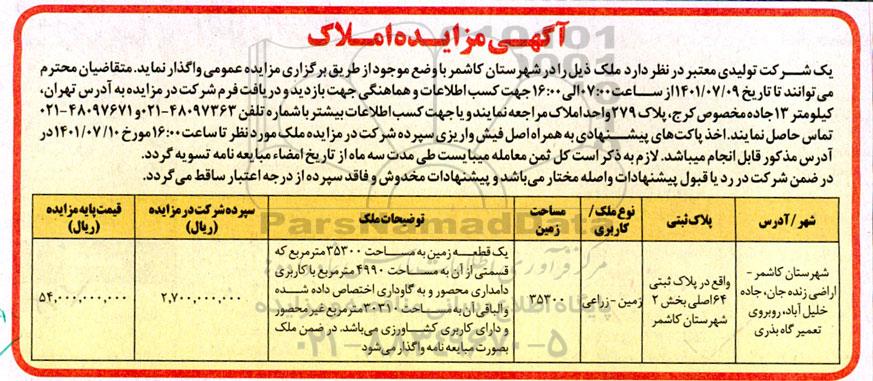 آگهی مزایده املاک
یک شرکت تولیدی معتبر در نظر دارد ملک ذیل را در شهرستان کاشمر با وضع موجود از طریق برگزاری مزایده عمومی واگذار نماید. متقاضیان محترم
می توانند تا تاریخ ۱۴۰۱/۰۷/۰۹ از ساعت ۰۷:۰۰ الی ۱۶:۰۰ جهت کسب اطلاعات و هماهنگی جهت بازدید و دریافت فرم شرکت در مزایده به آدرس تهران،
کیلومتر ۱۳ جاده مخصوص کرج، پلاک ۲۷۹ واحد املاک مراجعه نمایند و یا جهت کسب اطلاعات بیشتر با شماره تلفن ۴۸۰۹۷۳۶۳-۰۲۱ و ۴۸۰۹۷۶۷۱-۰۲۱
تماس حاصل نمایند. اخذ پاکت‌های پیشنهادی به همراه اصل فیش واریزی سپرده شرکت در مزایده ملک مورد نظر تا ساعت ۱۶:۰۰ مورخ ۱۴۰۱/۰۷/۱۰ در
آدرس مذکور قابل انجام میباشد. لازم به ذکر است کل ثمن معامله میبایست طی مدت سه ماه از تاریخ امضاء مبایعه نامه تسویه گردد.
در ضمن شرکت در رد یا قبول پیشنهادات واصله مختار می‌باشد و پیشنهادات مخدوش و فاقد سپرده از درجه اعتبار ساقط می گردد.
شهر / آدرس
پلاک ثبتی
نوع ملک / کاربری
مساحت زمین
توضیحات ملک
سپرده شرکت در مزایده (ریال)
قیمت پایه مزایده (ریال)
شهرستان کاشمر -
اراضی زنده جان، جاده
خلیل آباد، روبروی
تعمیر گاه بذری
واقع در پلاک ثبتی
۶۴ اصلی بخش ۲
شهرستان کاشمر
زمین - زراعی
۳۵۳۰۰
یک قطعه زمین به مساحت ۳۵۳۰۰ مترمربع که
قسمتی از آن به مساحت ۴۹۹۰ مترمربع با کاربری
دامداری محصور و به گاوداری اختصاص داده شده
و الباقی آن به مساحت ۳۰۳۱۰ مترمربع غیر محصور
و دارای کاربری کشاورزی می‌باشد. در ضمن ملک
بصورت مبایعه نامه واگذار می‌شود
۲,۷۰۰,۰۰۰,۰۰۰
۵۴,۰۰۰,۰۰۰,۰۰۰
ParsNamadData
۰۲۱-۸۸۳۴۹۶۷۰-۵